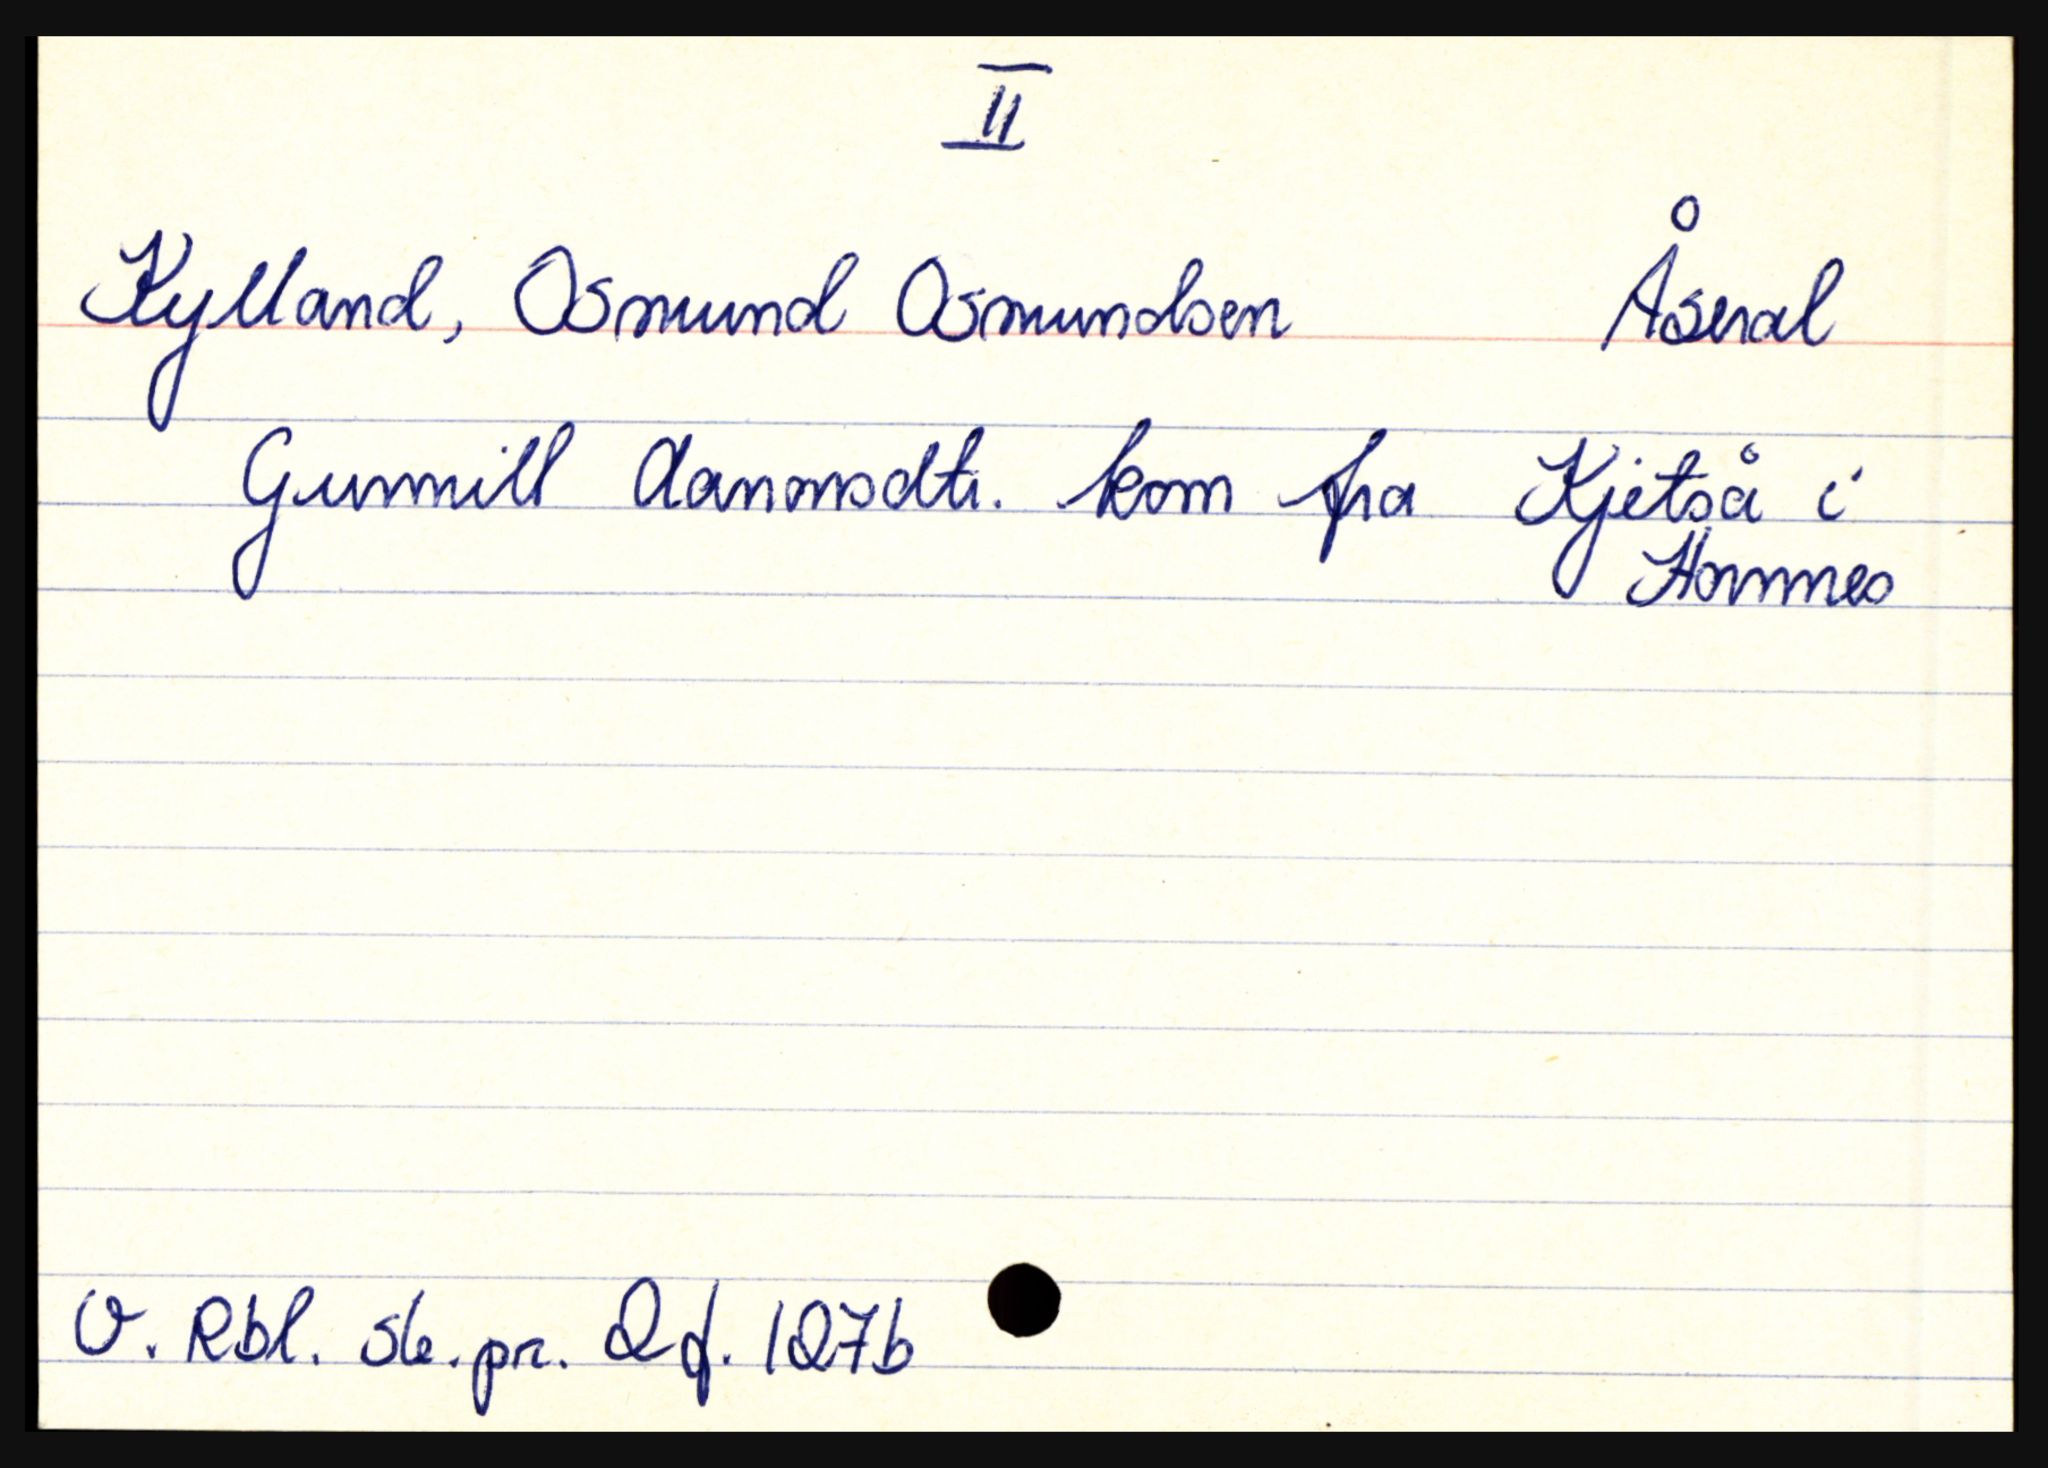 II
Kylland, Osmund Osmundsen Åseral
Gunnill Aanonsdtr. kom fra Kjetså i
Hornnes
V. Rbl. sk.pr. 2 f. 127b